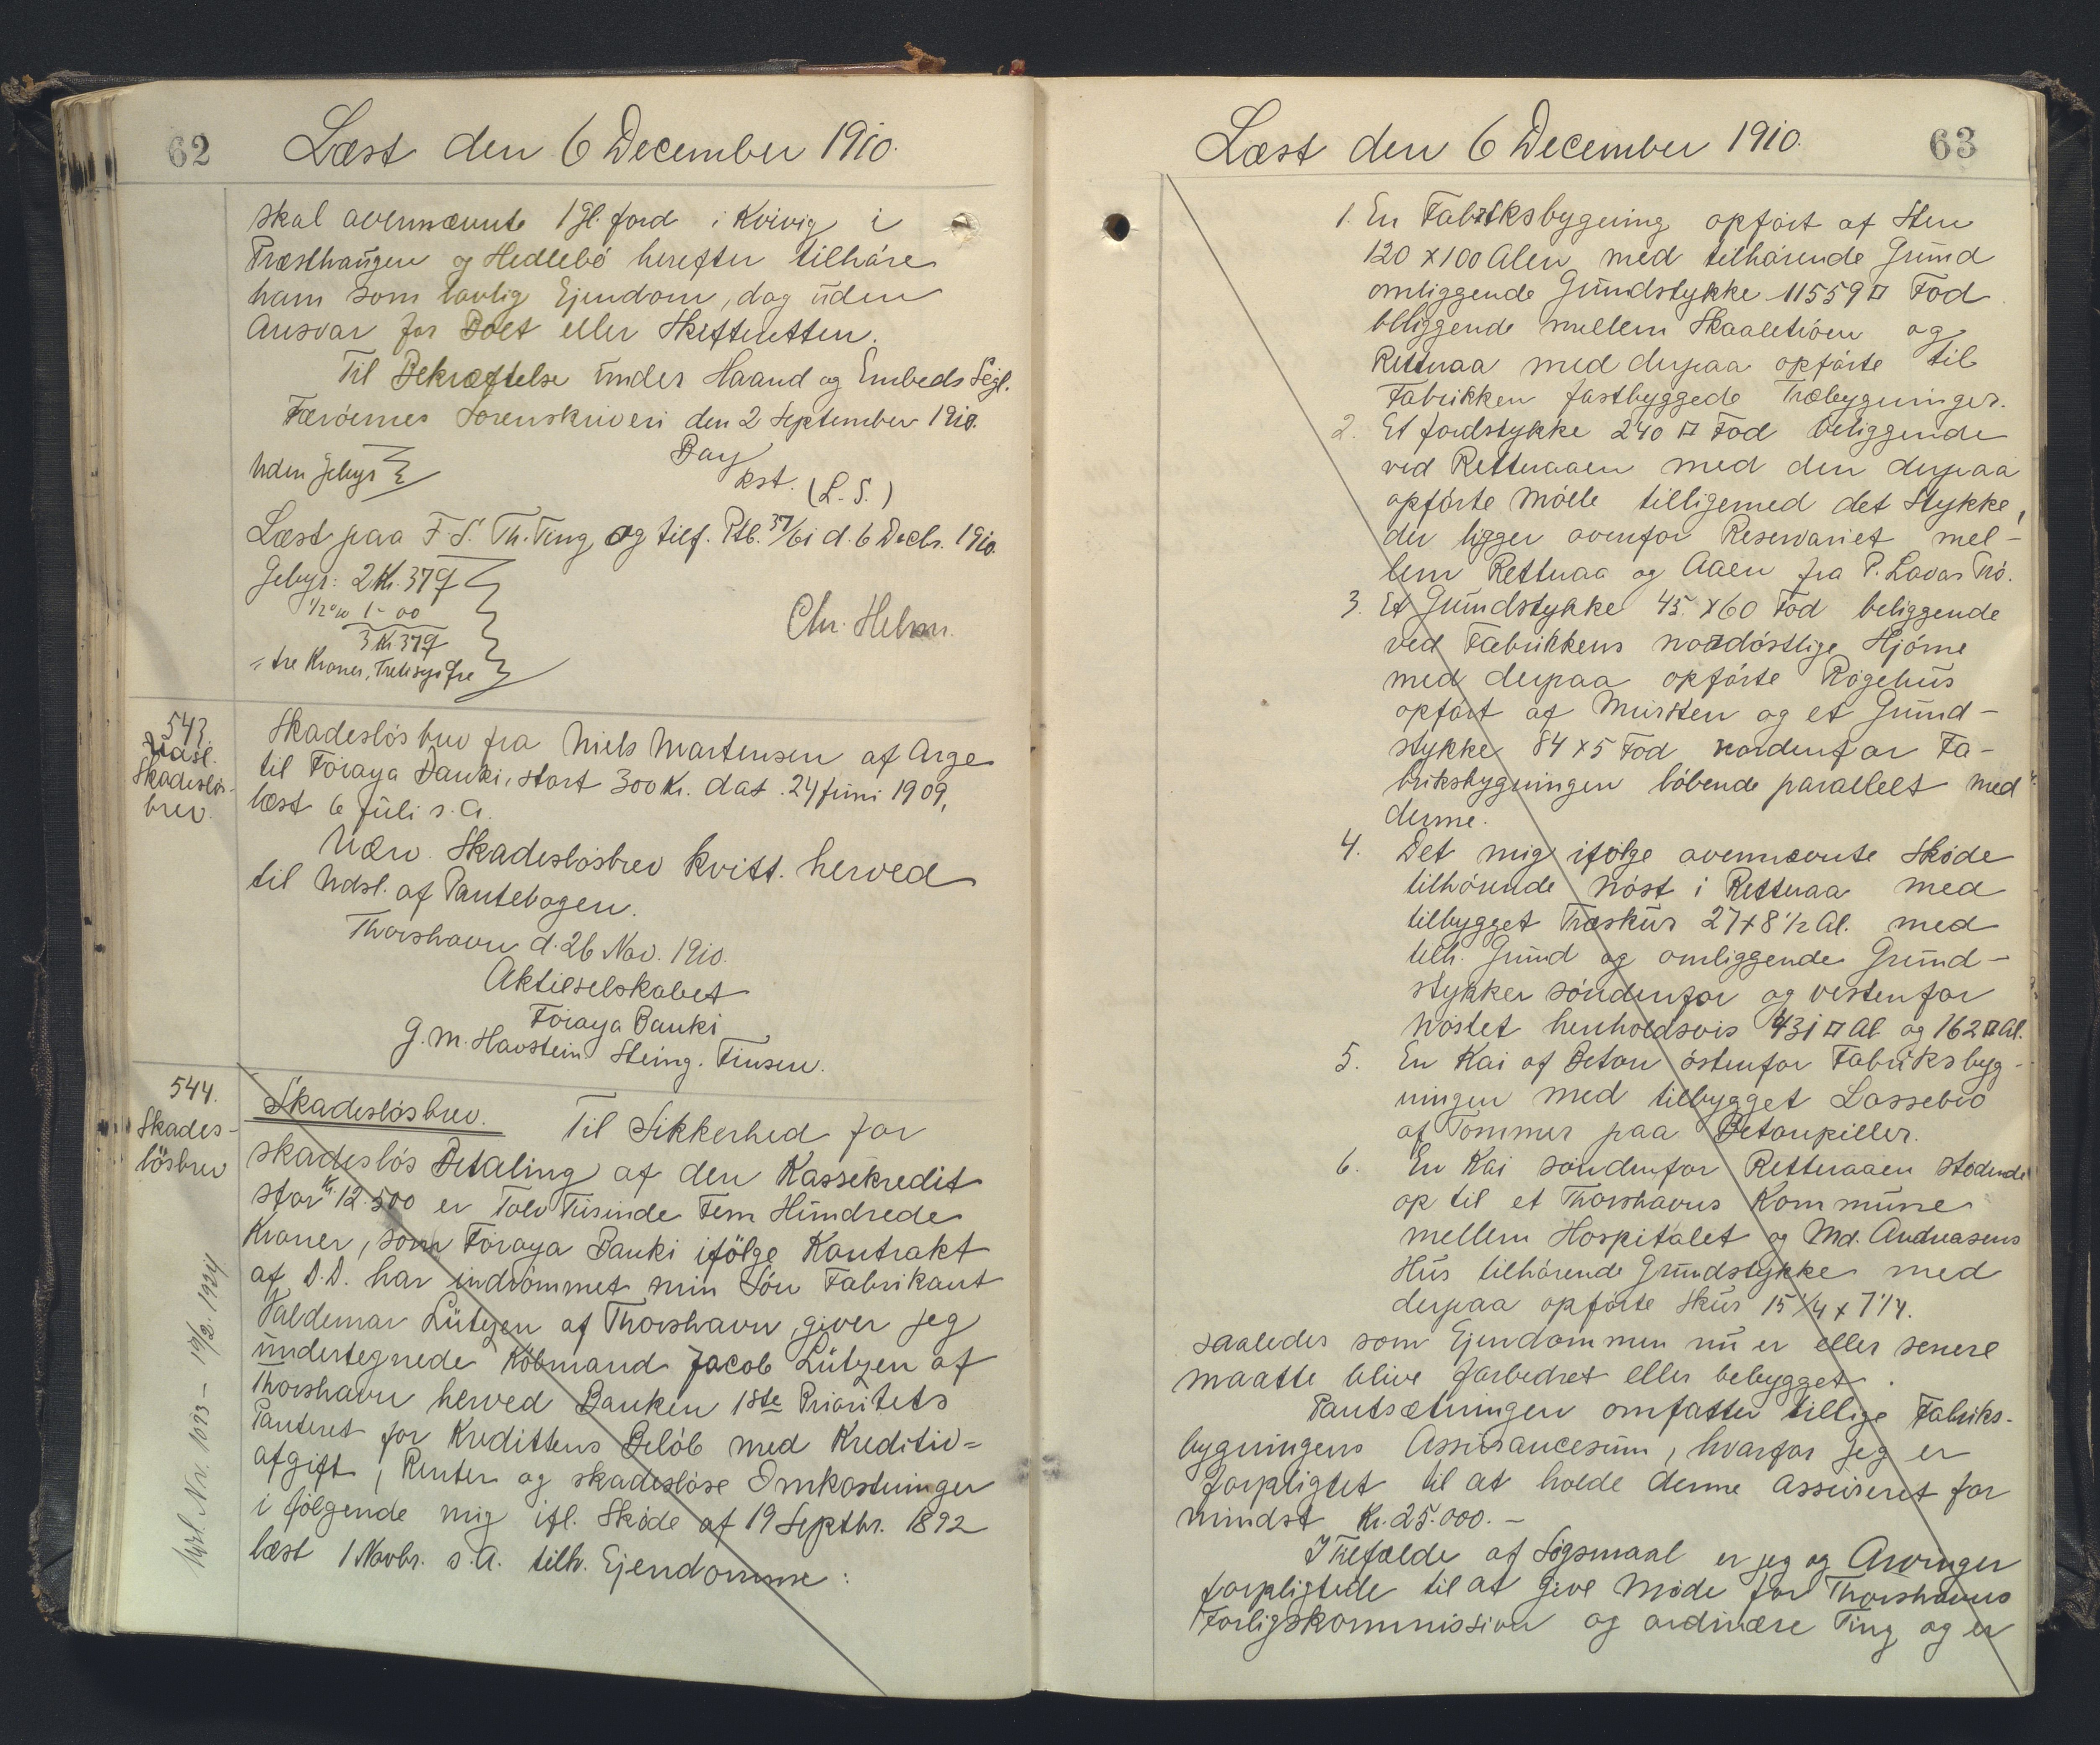 62
Læst den 6 December 1910.
skal ovennævnte 1 Gl. Jord i Kvivig i
Præsthaugen og Hedlebø herefter tilhøre
ham som lovlig Ejendom, dog uden
Ansvar for Boet eller Skifteretten.
Til Bekræftelse under Haand og Embeds Segl.
Færøernes Sorenskriveri den 2 September 1910.
Bay
kst. (L. S.)
Uden Gebyr
Læst paa F. S. Th. Ting og tilf. Ptb. 37/61 d. 6 Decbr. 1910.
Gebyr: 2 Kr. 37 Ø
1/2 % 1 - 00
3 Kr 37 Ø
= tre Kroner, Tretisyv Øre
Chr. Helm.
543.
Udsl.
Skadesløs-
brev.
Skadesløsbrev fra Niels Martensen af Arge
til Föroya Banki, stort 300 Kr. dat. 24 Juni 1909,
læst 6 Juli s. A.
Nærv. Skadesløsbrev kvitt. herved
til Udsl. af Pantebogen.
Thorshavn d. 26 Nov. 1910.
Aktieselskabet
Föroya Banki
G. M. Havstein Steing. Finsen.
544.
Skades-
løsbrev
Udsl. Nr. 1093 - 19/2. 1924
Skadesløsbrev. Til Sikkerhed for
skadesløs Betaling af den Kassekredit
stor Kr. 12.500 er Tolv Tusinde Fem Hundrede
Kroner, som Föroya Banki ifølge Kontrakt
af D. D. har indrømmet min Søn Fabrikant
Valdemar Lützen af Thorshavn, giver jeg
undertegnede Købmand Jacob Lützen af
Thorshavn herved Banken 1ste Prioritets
Panteret for Kredittens Beløb med Kreditiv=
afgift, Renter og skadesløse Omkostninger
i følgende mig ifl. Skøde af 19 Septbr. 1892
læst 1 Novbr. s. A. tilh. Ejendomme:
Læst den 6 December 1910.
63
1. En Fabriksbygning opført af Sten
120 x 100 Alen med tilhørende Grund
omliggende Grundstykke 11559 □ Fod
beliggende mellem Skaaletrøen og
Retteraa med derpaa opførte til
Fabrikken fastbyggede Træbygninger.
2. Et Jordstykke 240 □ Fod beliggende
ved Retteraaen med den derpaa
opførte Mølle tilligemed det Stykke,
der ligger ovenfor Reservariet mel-
lem Retteraa og Aaen fra P. Lavas Trø.
3. Et Grundstykke 45 x 60 Fod beliggende
ved Fabrikkens nordøstlige Hjørne
med derpaa opførte Røgehus
opført af Mursten og et Grund-
stykke 84 x 5 Fod nordenfor Fa-
briksbygningen løbende parallelt med
denne.
4. Det mig ifølge ovennævnte Skøde
tilhørende Nøst i Retteraa med
tilbygget Træskur 27 x 8 1/2 Al. med
tilh. Grund og omliggende Grund-
stykker søndenfor og vestenfor
Nøstet henholdsvis 431 □ Al og 162 □ Al.
5. En Kai af Beton østenfor Fabriksbyg-
ningen med tilbygget Lossebro
af Tømmer paa Betonpiller.
6. En Kai søndenfor Retteraaen stødende
op til et Thorshavns Kommune
mellem Hospitalet og Md. Andreasens
Hus tilhørende Grundstykke med
derpaa opførte Skur 15 1/4 x 7 1/4.
saaledes som Ejendommen nu er eller senere
maatte blive forbedret eller bebygget.
Pantsætningen omfatter tillige Fabriks-
bygningens Assurancesum, hvorfor jeg er
forpligtet til at holde denne assureret for
mindst Kr. 25.000. -
I Tilfælde af Søgsmaal er jeg og Arvinger
forpligtede til at give Møde for Thorshavns
Forligskommission og ordinære Ting og er